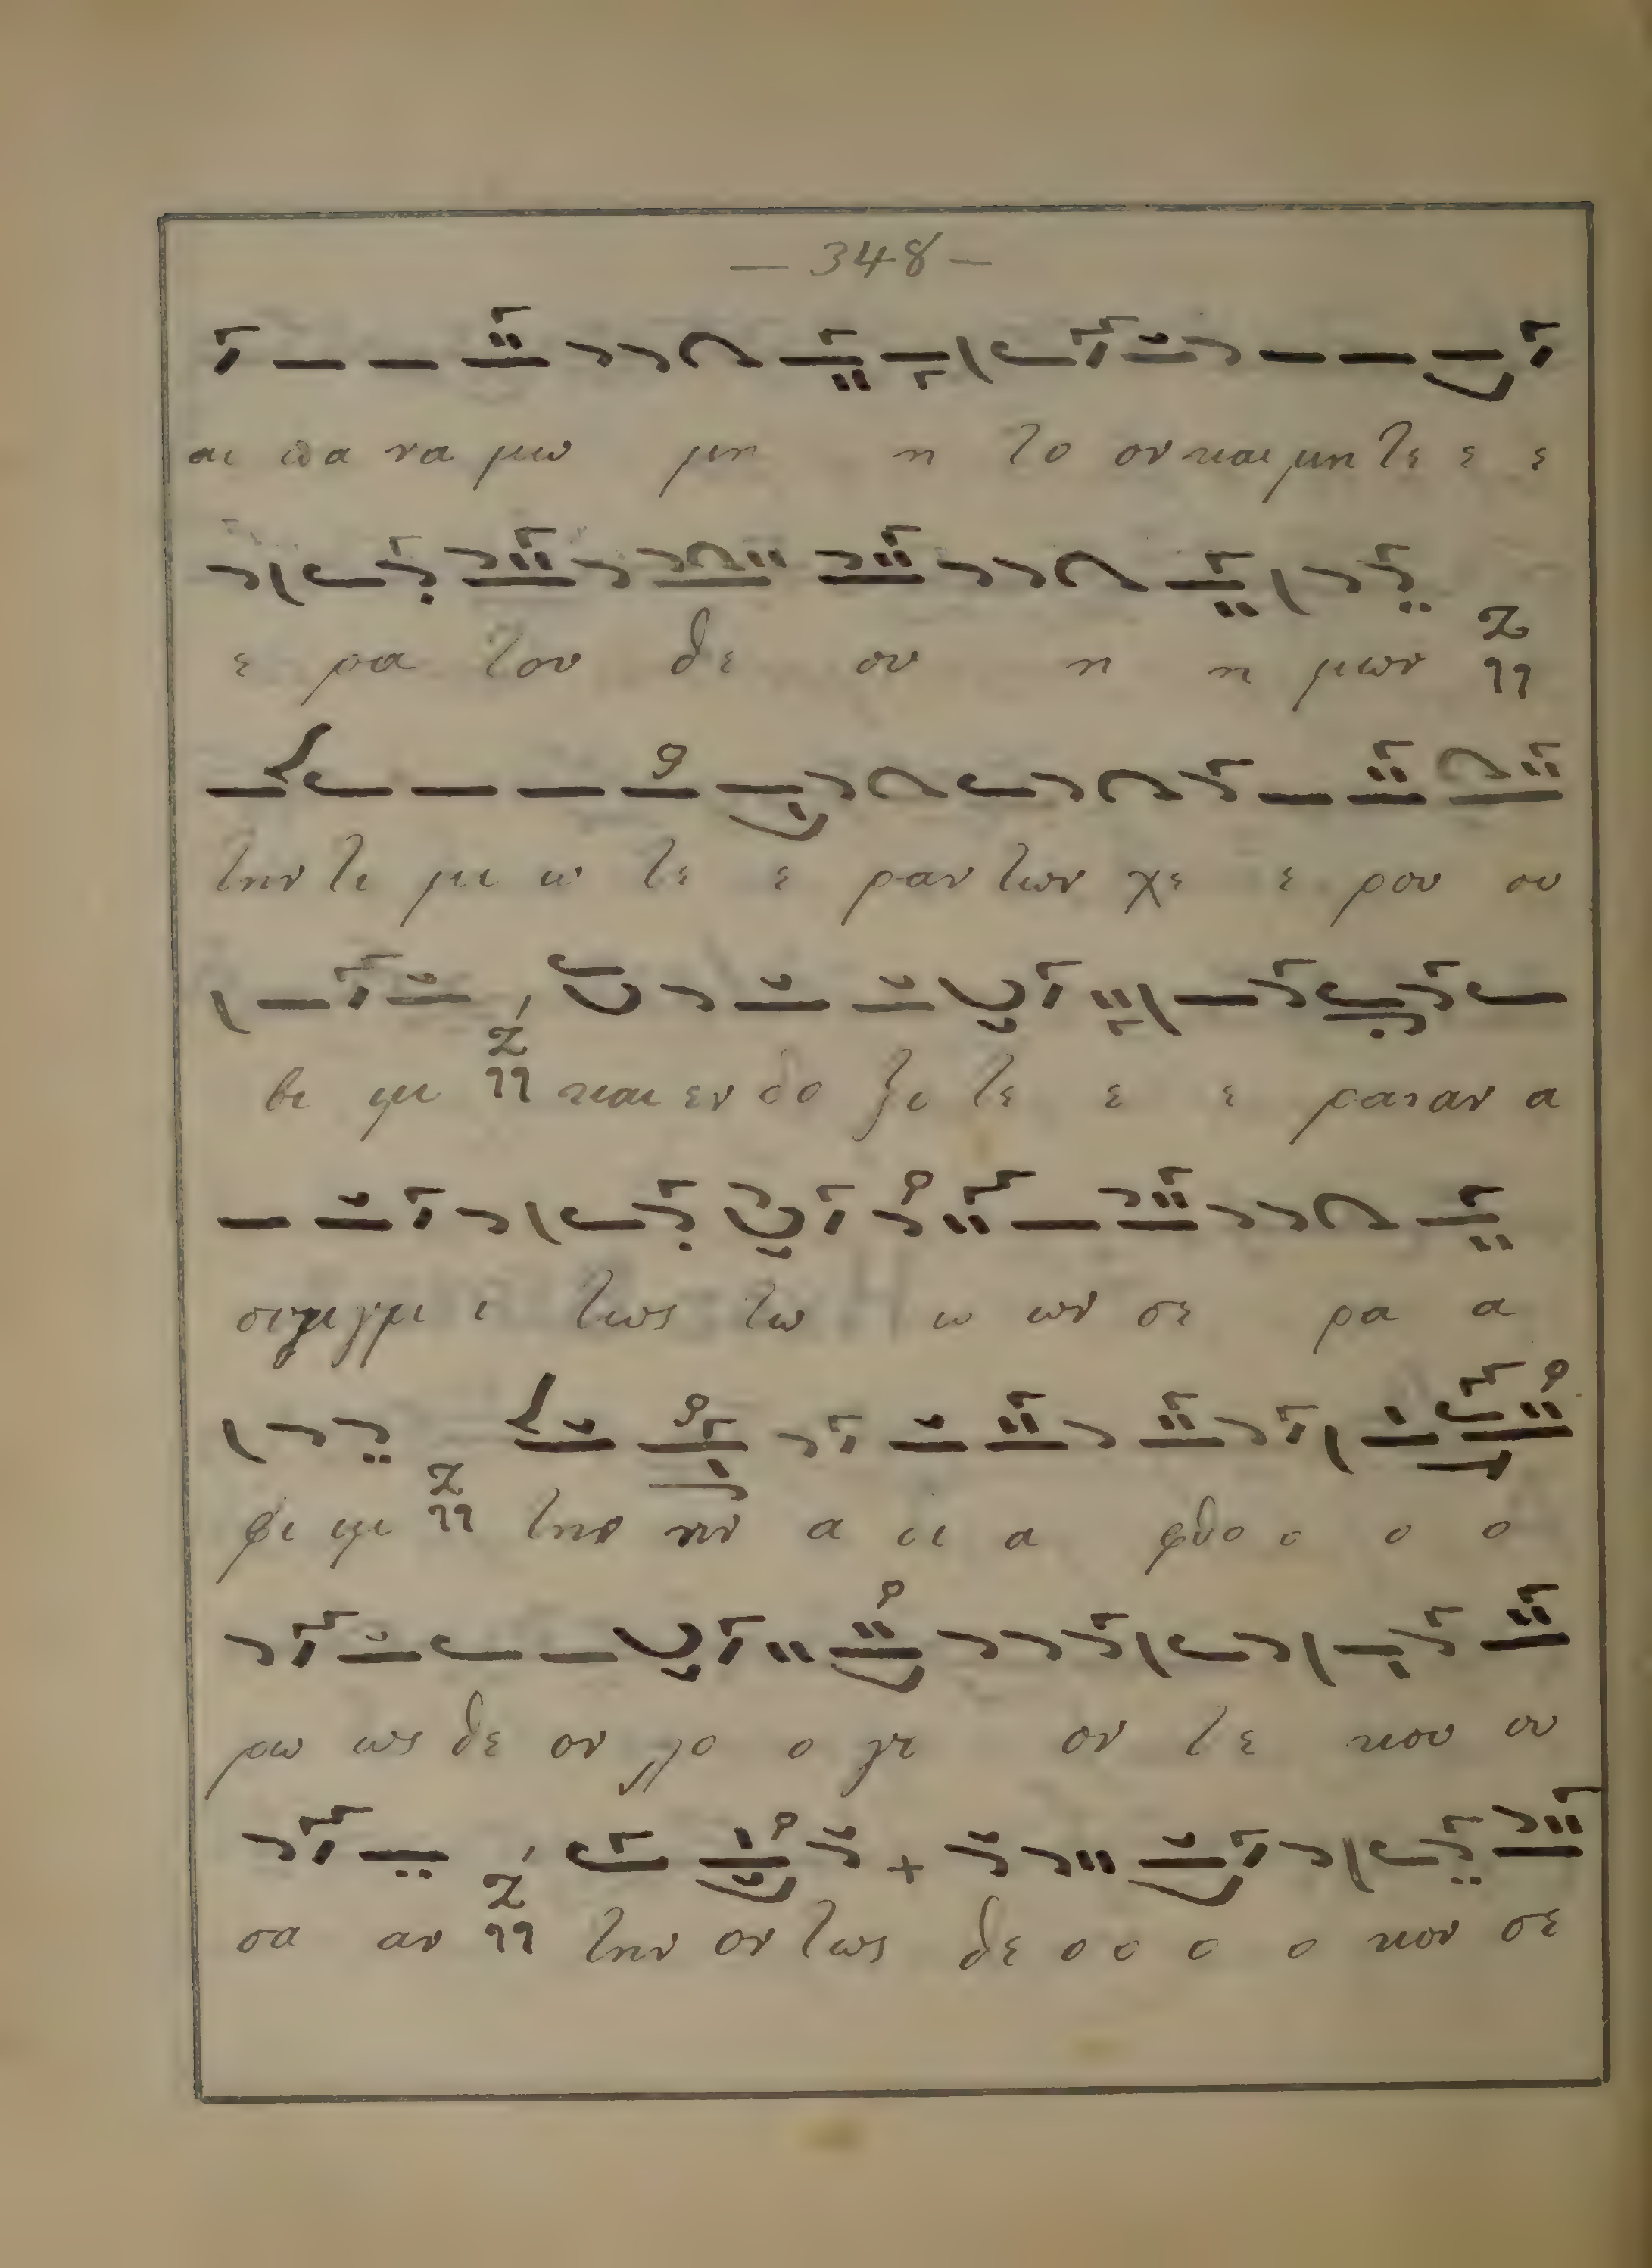 — 348 —
αι πα να μω μη η το ον και μη τε ε ε
ε ρα του θε ου η η μων
την τι μι ω τε ε ραν των χε ε ρου ου
βι μι και εν δο ξο τε ε ε ραν αν α
συγκρι ι τως τω ω ων σε ρα α
φι μι την αν α δι α φθο ο ο ο
ρω ως θε ον λο ο γο ον τε κου ου
σα αν την ον τως θε ο ο ο ο κον σε